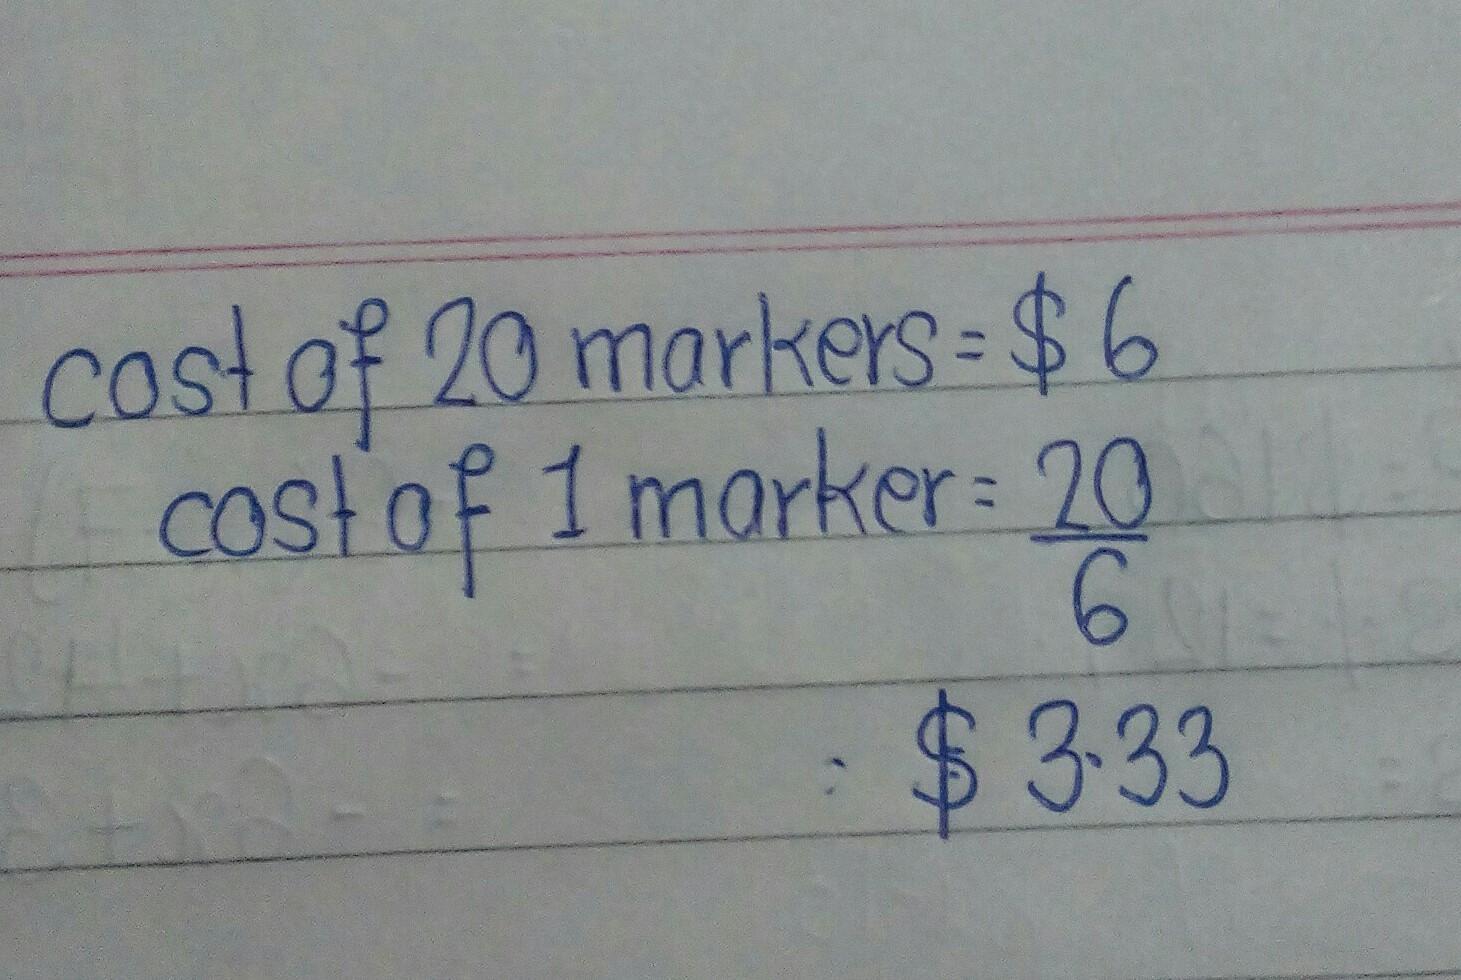 cost of 20 markers = $ 6
cost of 1 marker = 20/6
= $ 3.33